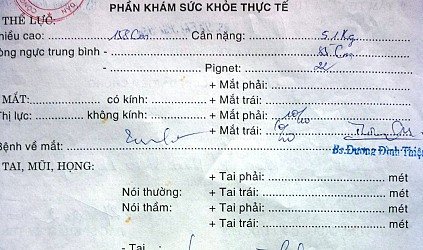 PHẦN KHÁM SỨC KHỎE THỰC TẾ
THỂ LỰC:
hiều cao: 158 Cm Cân nặng: 51 Kg
òng ngực trung bình - 85 Cm
- Pignet: 22
+ Mắt phải:
MẮT: có kính: + Mắt trái:
hị lực: không kính: + Mắt phải: 10/10
+ Mắt trái:
Bệnh về mắt:
Bs.Dương Đình Thiệ
TAI, MŨI, HỌNG:
+ Tai phải: mét
Nói thường: + Tai trái: mét
Nói thầm: + Tai phải: mét
+ Tai trái: mét
- Tai